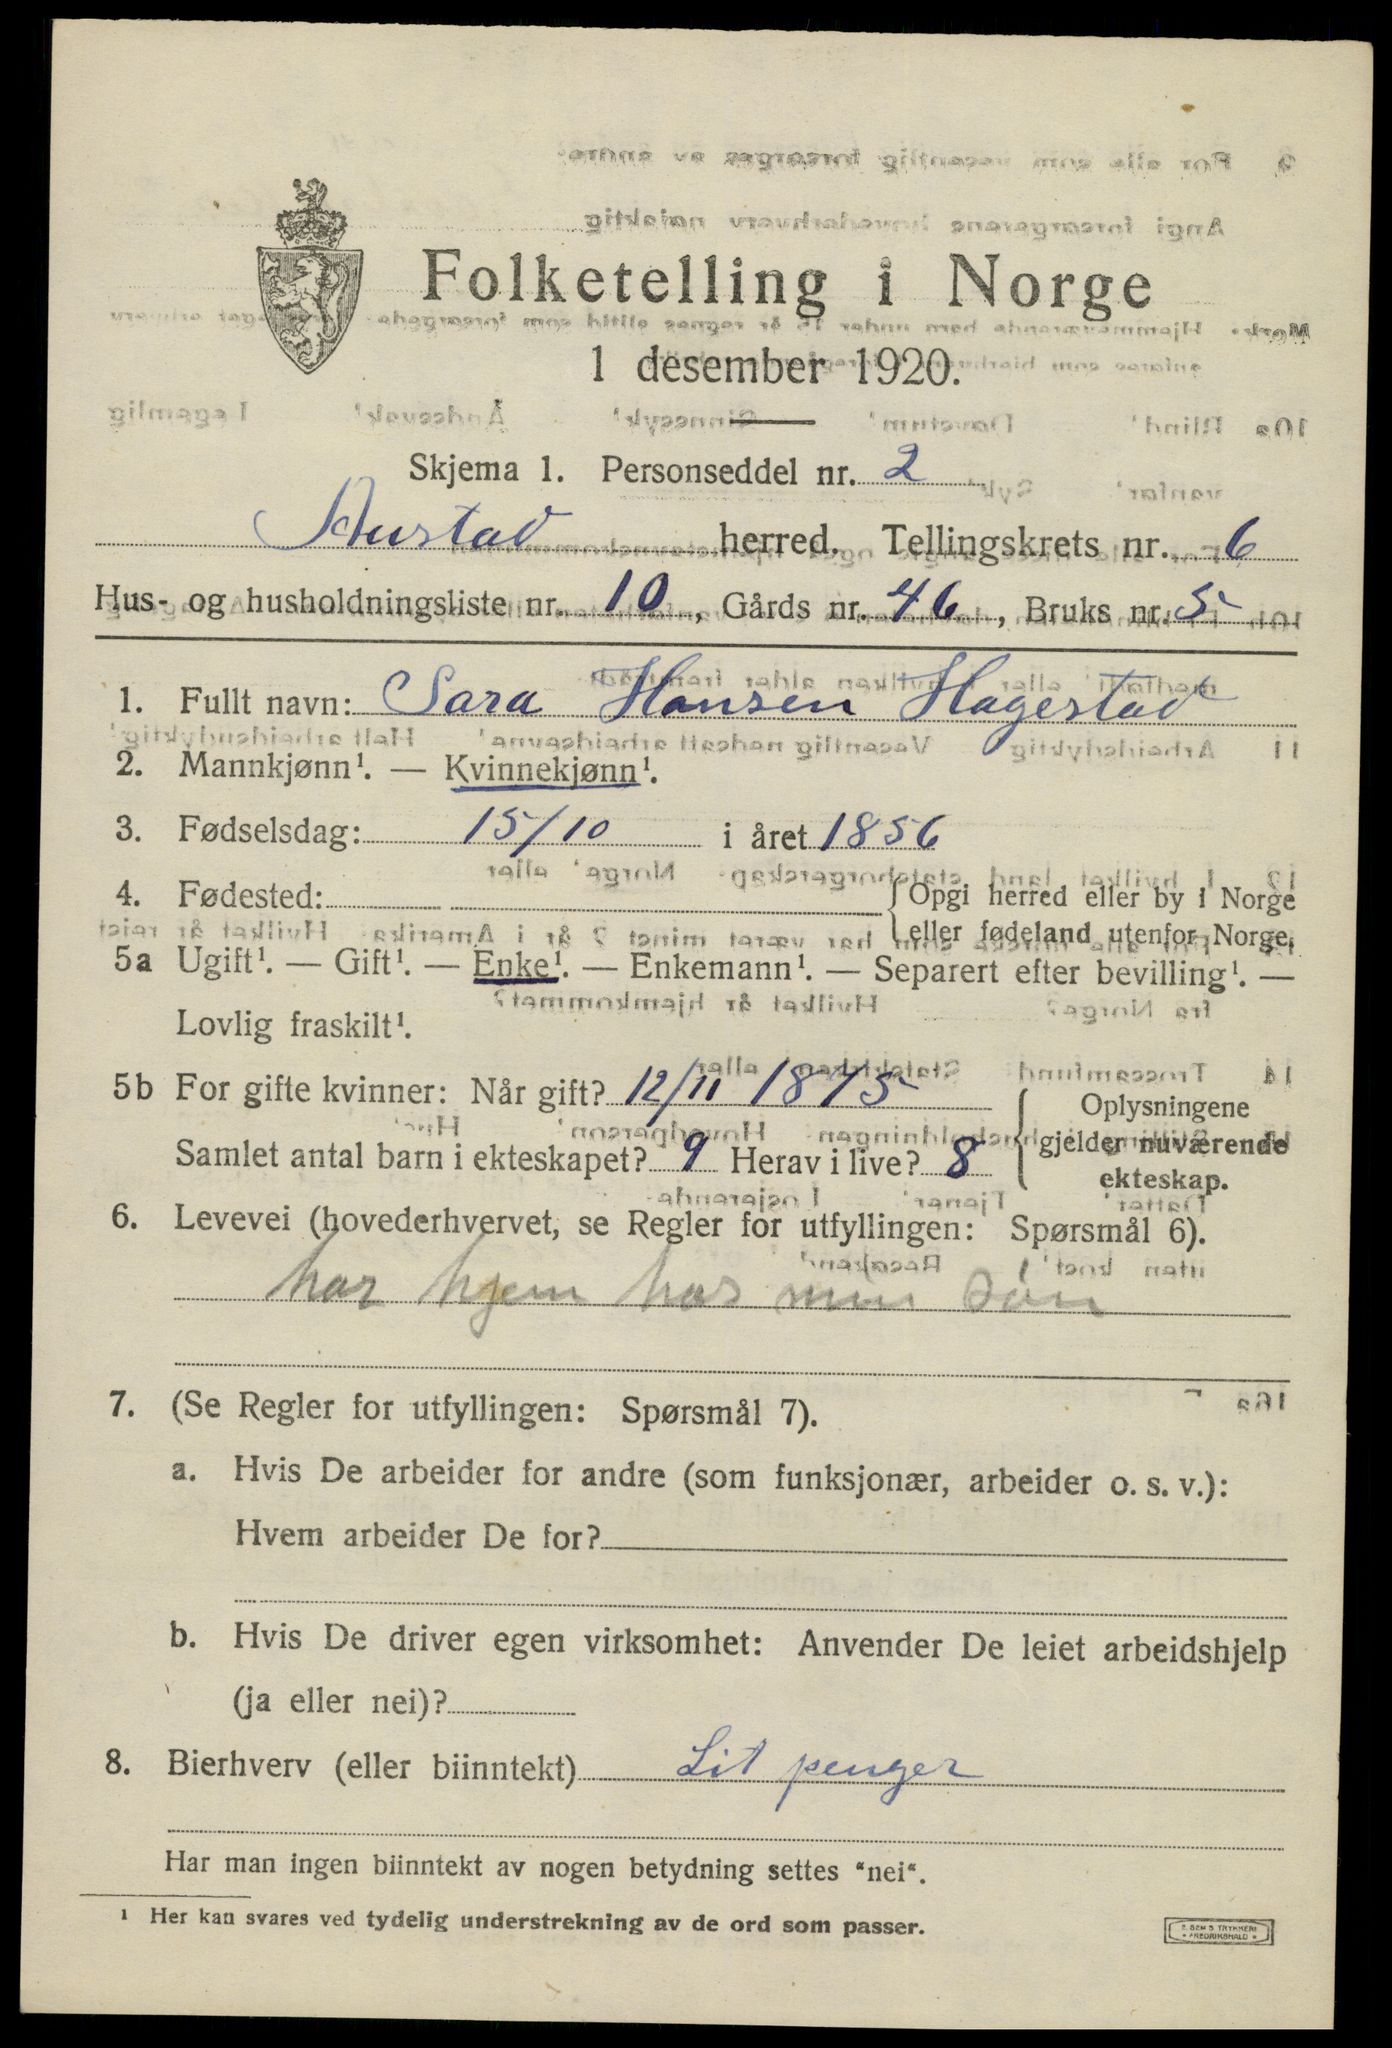 Folketelling i Norge
1 desember 1920.
Skjema 1. Personseddel nr. 2
Austad herred. Tellingskrets nr. 6
Hus- og husholdningsliste nr. 10, Gårds nr. 46, Bruks nr. 5
1. Fullt navn: Sara Hansen Hagestad
2. Mannkjønn¹. — Kvinnekjønn¹.
3. Fødselsdag: 15/10 i året 1856
4. Fødested: {Opgi herred eller by i Norge
eller fødeland utenfor Norge.
5a Ugift¹. — Gift¹. — Enke¹. — Enkemann¹. — Separert efter bevilling¹. —
Lovlig fraskilt¹.
5b For gifte kvinner: Når gift? 12/11 1875
Samlet antal barn i ekteskapet? 9 Herav i live? 8
Oplysningene
gjelder nuværende
ekteskap.
6. Levevei (hovederhvervet, se Regler for utfyllingen: Spørsmål 6).
har hjem hos min Søn
7. (Se Regler for utfyllingen: Spørsmål 7).
a. Hvis De arbeider for andre (som funksjonær, arbeider o. s. v.):
Hvem arbeider De for?
b. Hvis De driver egen virksomhet: Anvender De leiet arbeidshjelp
(ja eller nei)?
8. Bierhverv (eller biinntekt) Lit penger
Har man ingen biinntekt av nogen betydning settes "nei".
1 Her kan svares ved tydelig understrekning av de ord som passer.
E. SEM'S TRYKKERI
FREDRIKSHALD